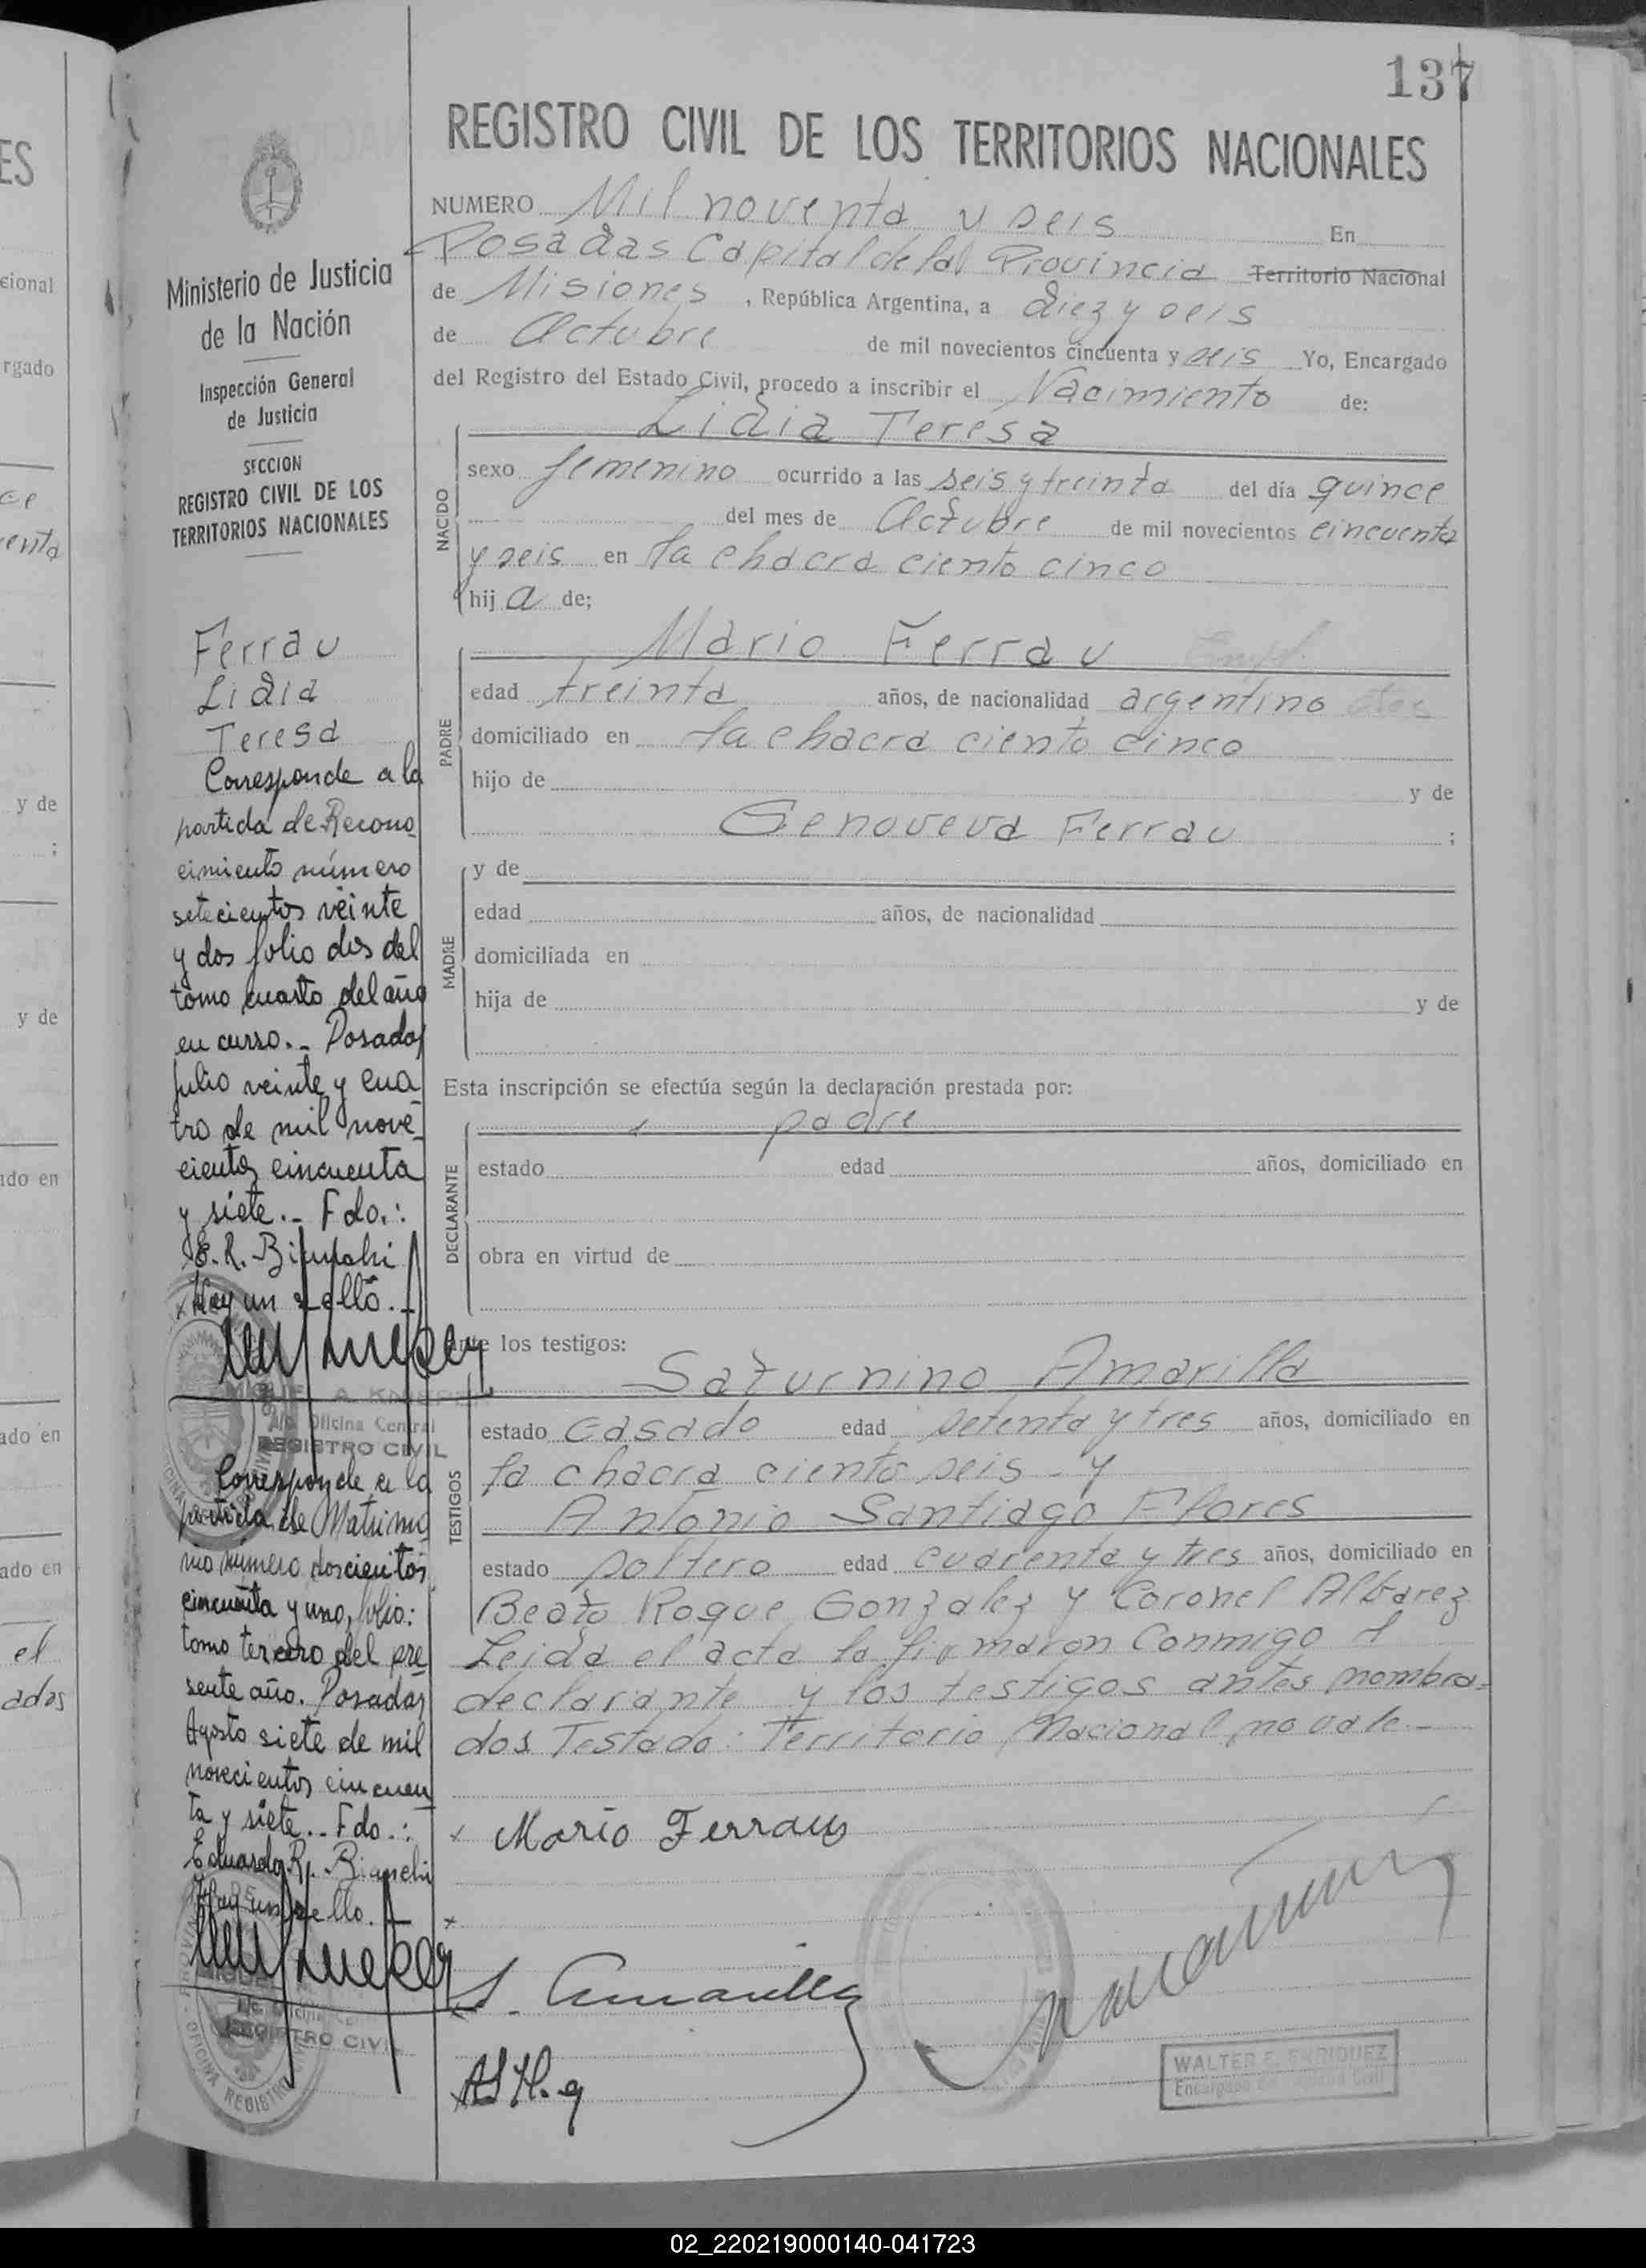 137
REGISTRO CIVIL DE LOS TERRITORIOS NACIONALES
NUMERO Mil noventa y seis En
Posadas Capital de la Provincia Territorio Nacional
de Misiones, República Argentina, a diez y seis
de Octubre de mil novecientos cincuenta y seis Yo, Encargado
del Registro del Estado Civil, procedo a inscribir el Nacimiento de:
NACIDO
Lidia Teresa
sexo femenino ocurrido a las seis y treinta del día quince
del mes de Octubre de mil novecientos cincuenta
y seis en la chacra ciento cinco
hij a de;
PADRE
Mario Ferrau
edad treinta años, de nacionalidad argentino
domiciliado en la chacra ciento cinco
hijo de y de
Genoveva Ferrau ;
MADRE
y de
edad años, de nacionalidad
domiciliada en
hija de y de
Esta inscripción se efectúa según la declaración prestada por:
DECLARANTE
padre
estado edad años, domiciliado en
obra en virtud de
ante los testigos:
TESTIGOS
Saturnino Amarilla
estado casado edad setenta y tres años, domiciliado en
la chacra ciento seis - y
Antonio Santiago Flores
estado soltero edad cuarenta y tres años, domiciliado en
Beato Roque Gonzalez y Coronel Albarez
Leida el acta la firmaron conmigo el
declarante y los testigos antes nombra-
dos Testado: Territorio Nacional, no vale.-
x Mario Ferrau
x
S. Amarilla
WALTER E. ENRIQUEZ
Ministerio de Justicia
de la Nación
Inspección General
de Justicia
SECCION
REGISTRO CIVIL DE LOS
TERRITORIOS NACIONALES
Ferrau
Lidia
Teresa
Corresponde a la
partida de Recono
cimiento número
setecientos veinte
y dos folio dos del
tomo cuarto del año
en curso.- Posadas
Julio veinte y cua
tro de mil nove-
cientos cincuenta
y siete.- Fdo.:
E. R. Bianchi
Hay un sello.-
MIGUEL A. KNEPER
Oficina Central
REGISTRO CIVIL
Corresponde a la
partida de Matrimo
nio número doscientos
cincuenta y uno, folio:
tomo tercero del pre
sente año. Posadas,
Agosto siete de mil
novecientos cincuen
ta y siete.- Fdo.:
Eduardo R. Bianchi
Hay un sello.-
REGISTRO CIVIL
OFICINA REGISTRO
ES
cional
rgado
ce
enta
y de
;
y de
ado en
ado en
ado en
el
ados
02_220219000140-041723